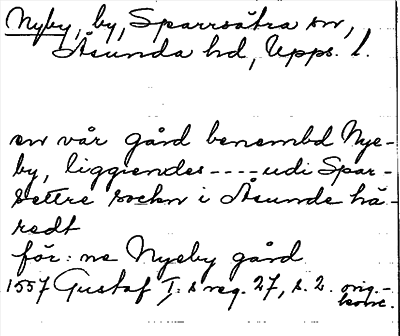 Nyby, by, Sparrsätra sn,
Åsunda hd, Upps. l.
en vår gård benembd Nye-
by, liggiendes ---- udi Spar-
settre sockn i Åsunde hä-
redt
för: ne Nyeby gård
1557 Gustaf I: s reg. 27, s. 2. orig.-
konc.